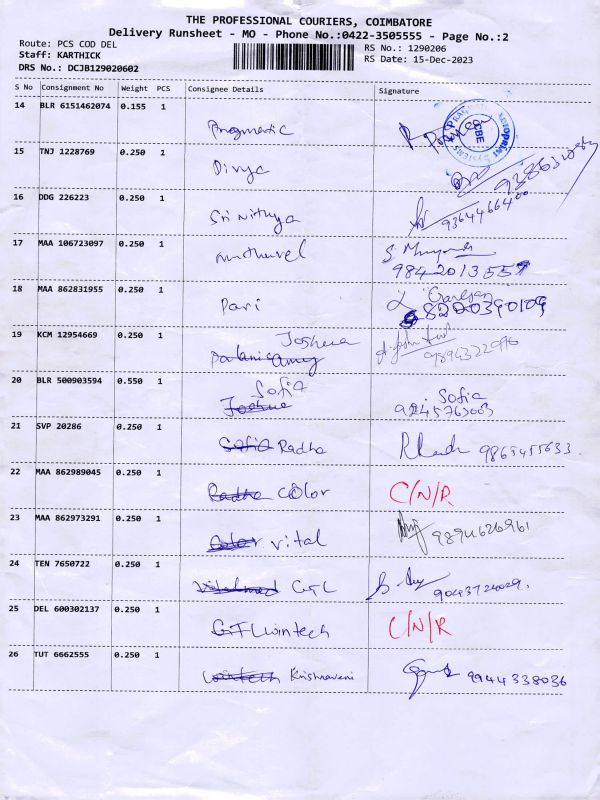 THE PROFESSIONAL COURIERS, COIMBATORE
Delivery Runsheet - MO - Phone No.:0422-3505555 - Page No.:2
Route: PCS COD DEL
RS No.: 1290206
Staff: KARTHICK
RS Date: 15-Dec-2023
DRS No.: DCJB129020602
S No Consignment No Weight PCS Consignee Details Signature
14 BLR 6151462074 0.155 1
Pragmatic
15 TNJ 1228769 0.250 1
Divya
16 DDG 226223 0.250 1
Sri Nithya
9364466400
17 MAA 106723097 0.250 1
muthuvel
9842013557
18 MAA 862831955 0.250 1
Pari
8220390109
19 KCM 12954669 0.250 1
Joshua
Palanisamy
9894322096
20 BLR 500903594 0.550 1
Sofia Sofia
Joshua 9245763003
21 SVP 20286 0.250 1
Sofia Radha 9865455633
22 MAA 862989045 0.250 1
Radha color C/N/R
23 MAA 862973291 0.250 1
color vital 9894626961
24 TEN 7650722 0.250 1
GTL 9043724029
25 DEL 600302137 0.250 1
GTL wintech C/N/R
26 TUT 6662555 0.250 1
wintech Krishnaveni 9944338036